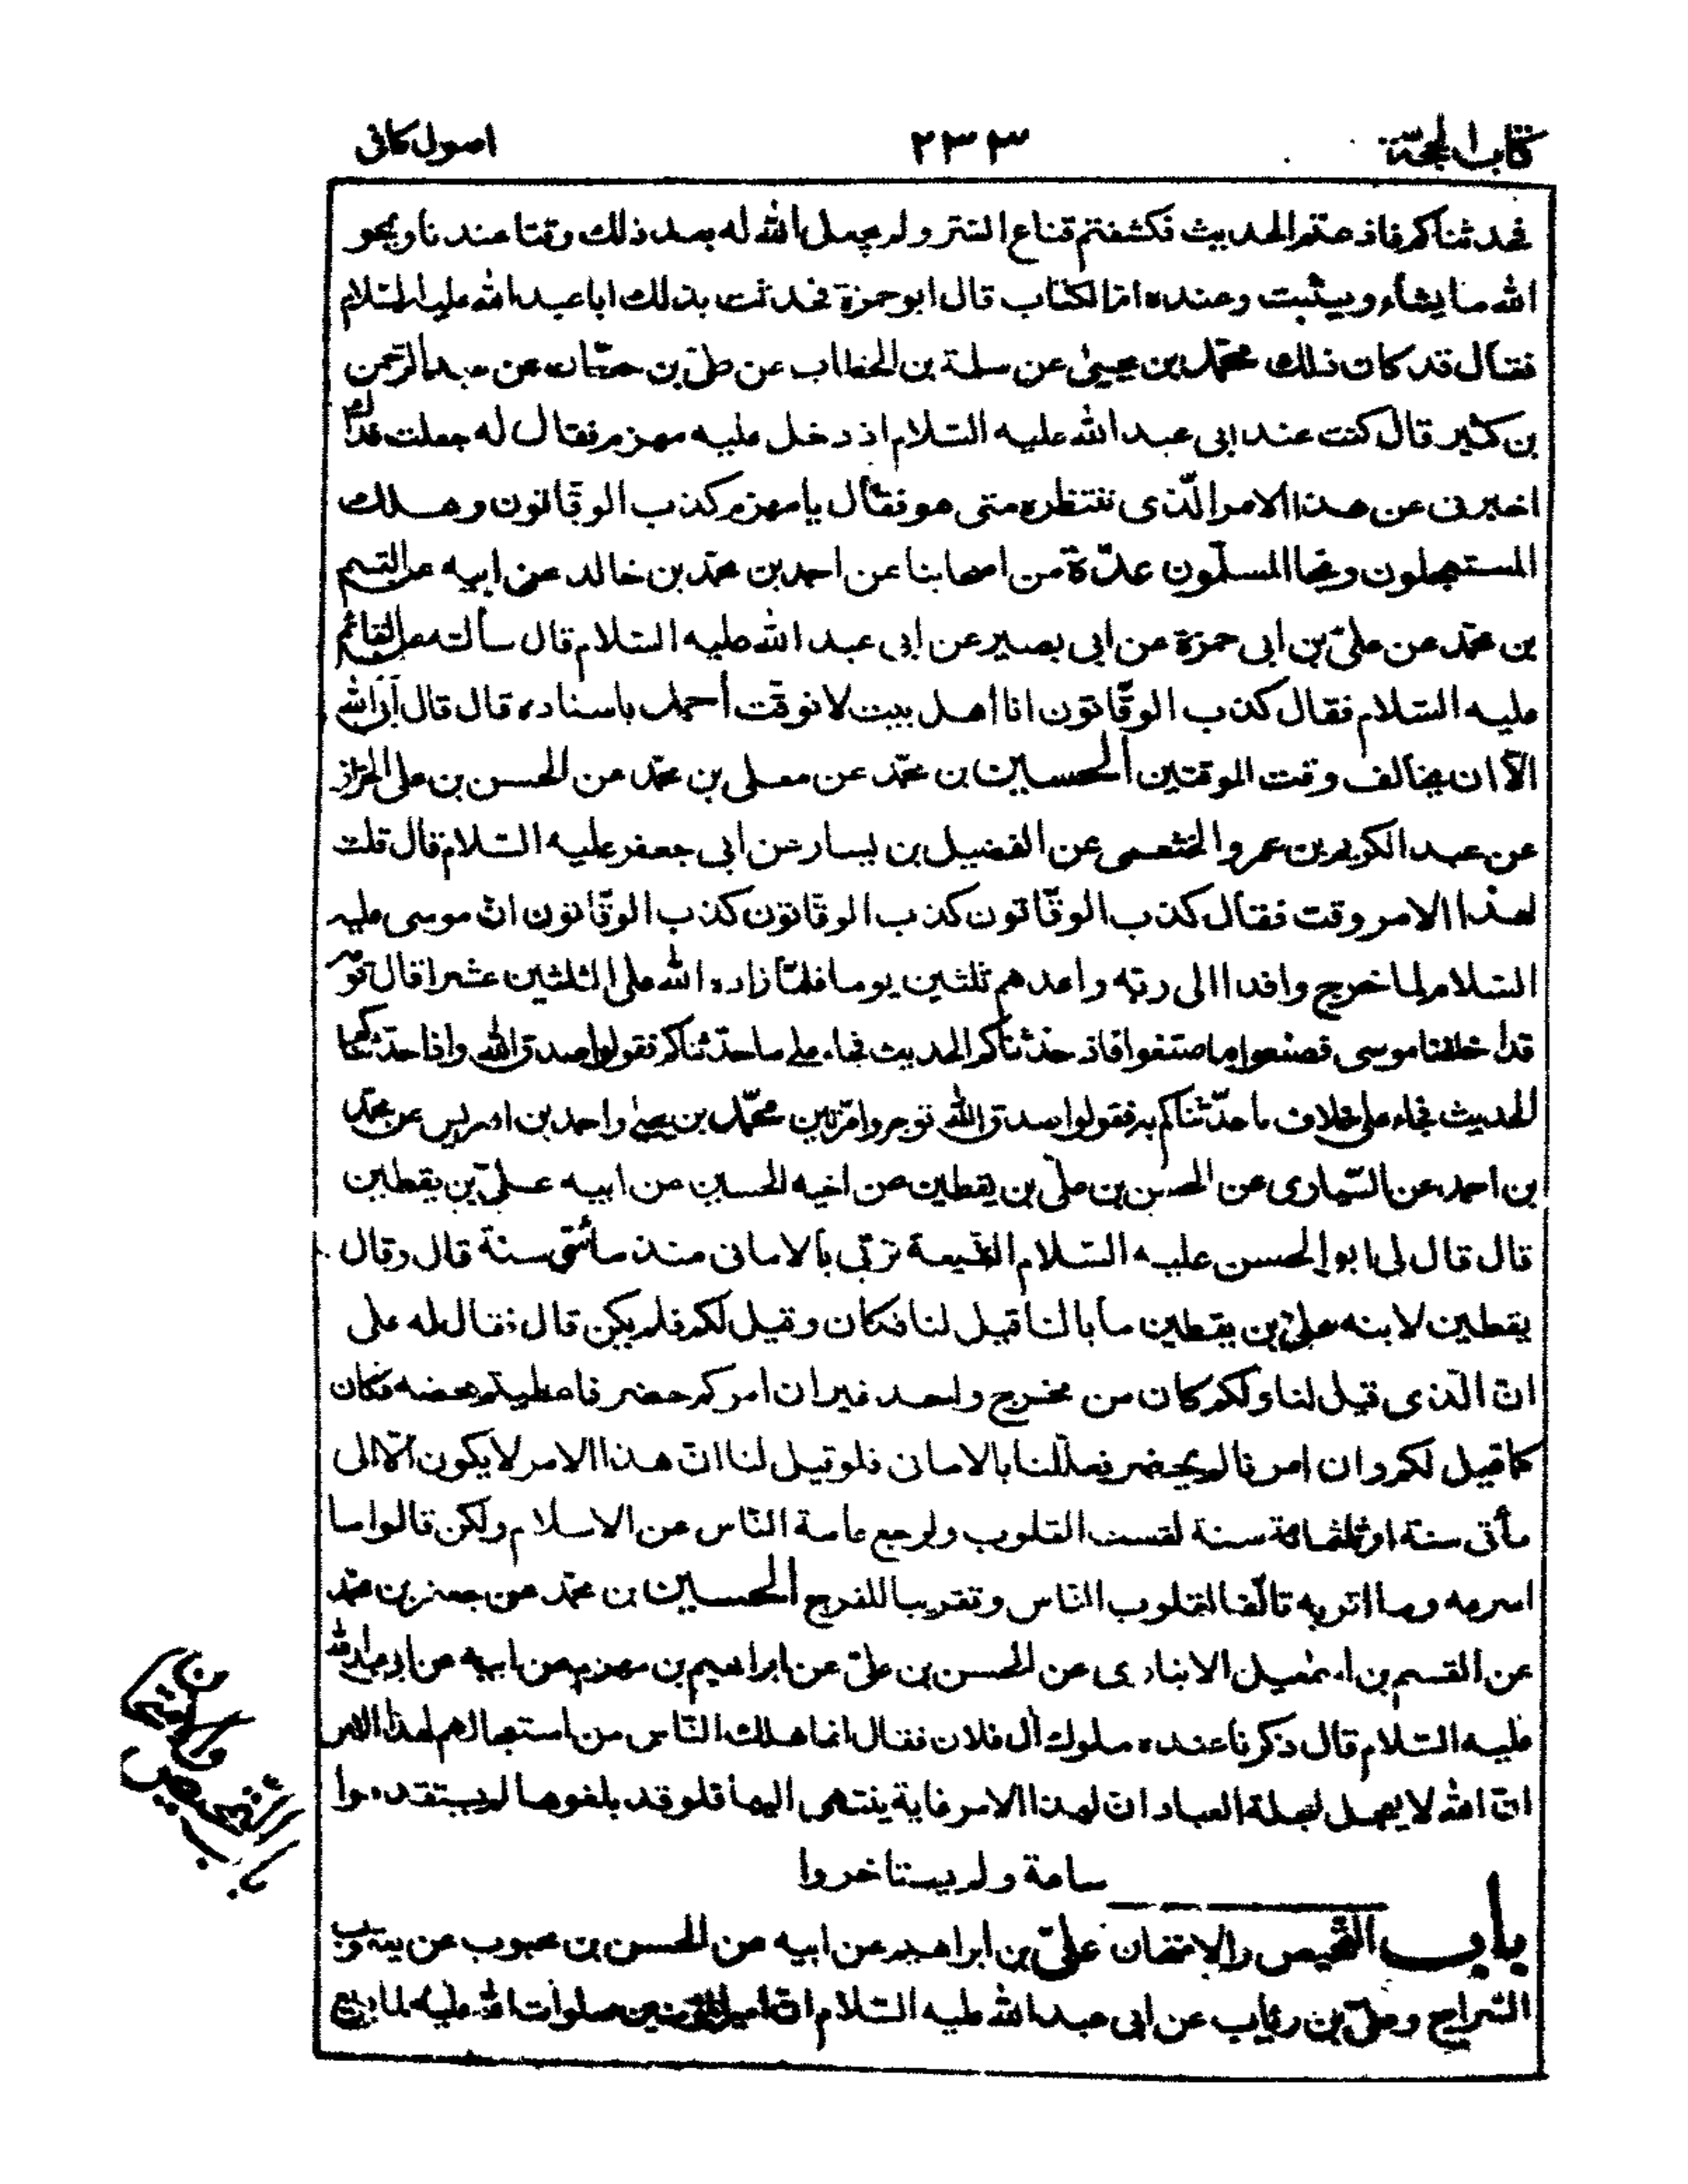 كتاب الحجة ٢٣٣ اصول كافى
فحدثناكم فاذعتم الحديث فكشفتم قناع الستر ولم يجعل الله له بعد ذلك وقتا عندنا ويمحو
الله ما يشاء ويثبت وعنده ام الكتاب قال ابو حمزة فحدثت بذلك ابا عبد الله عليه السلام
فقال قد كان ذلك محمّد بن يحيى عن سلمة بن الخطاب عن علىّ بن حسّان عن عبد الرحمن
بن كثير قال كنت عند ابى عبد الله عليه السلام اذ دخل عليه مهزم فقال له جعلت فداك
اخبرنى عن هذا الامر الّذى ننتظره متى هو فقال يا مهزم كذب الوقّاتون وهلك
المستعجلون ونجا المسلّمون عدّة من اصحابنا عن احمد بن محمّد بن خالد عن ابيه عن القسم
بن محمّد عن علىّ بن ابى حمزة عن ابى بصير عن ابى عبد الله عليه السلام قال سألته عن القائم
عليه السّلام فقال كذب الوقّاتون انا اهل بيت لا نوقّت أحمد باسناده قال قال أبى الله
الّا ان يخالف وقت الموقتين الحسين بن محمّد عن معلى بن محمّد عن الحسن بن على الخزاز
عن عبد الكريم بن عمرو الخثعمى عن الفضيل بن يسار عن ابى جعفر عليه السّلام قال قلت
لهذا الامر وقت فقال كذب الوقّاتون كذب الوقّاتون كذب الوقّاتون انّ موسى عليه
السّلام لما خرج وافدا الى ربّه واعدهم ثلثين يوما فلمّا زاده الله على الثلثين عشرا قال قومه
قد اخلفنا موسى فصنعوا ما صنعوا فاذا حدّثناكم الحديث فجاء على ما حدّثناكم فقولوا صدق الله واذا حدّثناكم
الحديث فجاء على خلاف ما حدّثناكم به فقولوا صدق الله توجروا مرّتين محمّد بن يحيى واحمد بن ادريس عن محمّد
بن احمد عن السّيارى عن الحسن بن علىّ بن يقطين عن اخيه الحسين عن ابيه علىّ بن يقطين
قال قال لى ابو الحسن عليه السّلام الشّيعة تربّى بالامانى منذ مأتى سنة قال وقال
يقطين لابنه علىّ بن يقطين ما بالنا قيل لنا فكان وقيل لكم فلم يكن قال فقال له على
انّ الّذى قيل لنا ولكم كان من مخرج واحد غير ان امركم حضر فاعطيتم محضه فكان
كما قيل لكم وان امرنا لم يحضر فعلّلنا بالامانى فلو قيل لنا انّ هذا الامر لا يكون الّا الى
مأتى سنة او ثلثمائة سنة لقست القلوب ولرجع عامة النّاس عن الاسلام ولكن قالوا ما
اسرعه وما اقربه تألّفا لقلوب النّاس وتقريبا للفرج الحسين بن محمّد عن جعفر بن محمّد
عن القسم بن اسمعيل الانبارى عن الحسن بن علىّ عن ابراهيم بن مهزم عن ابيه عن ابى عبد الله
عليه السّلام قال ذكرنا عنده ملوك آل فلان فقال انما هلك النّاس من استعجالهم لهذا الامر
انّ الله لا يعجل لعجلة العباد ان لهذا الامر غاية ينتهى اليها فلو قد بلغوها لم يستقدموا
ساعة ولم يستاخروا
باب التمحيص والامتحان علىّ بن ابراهيم عن ابيه عن الحسن بن محبوب عن يعقوب
السّراج وعلىّ بن رئاب عن ابى عبد الله عليه السّلام انّ امير المؤمنين صلوات الله عليه لما بويع